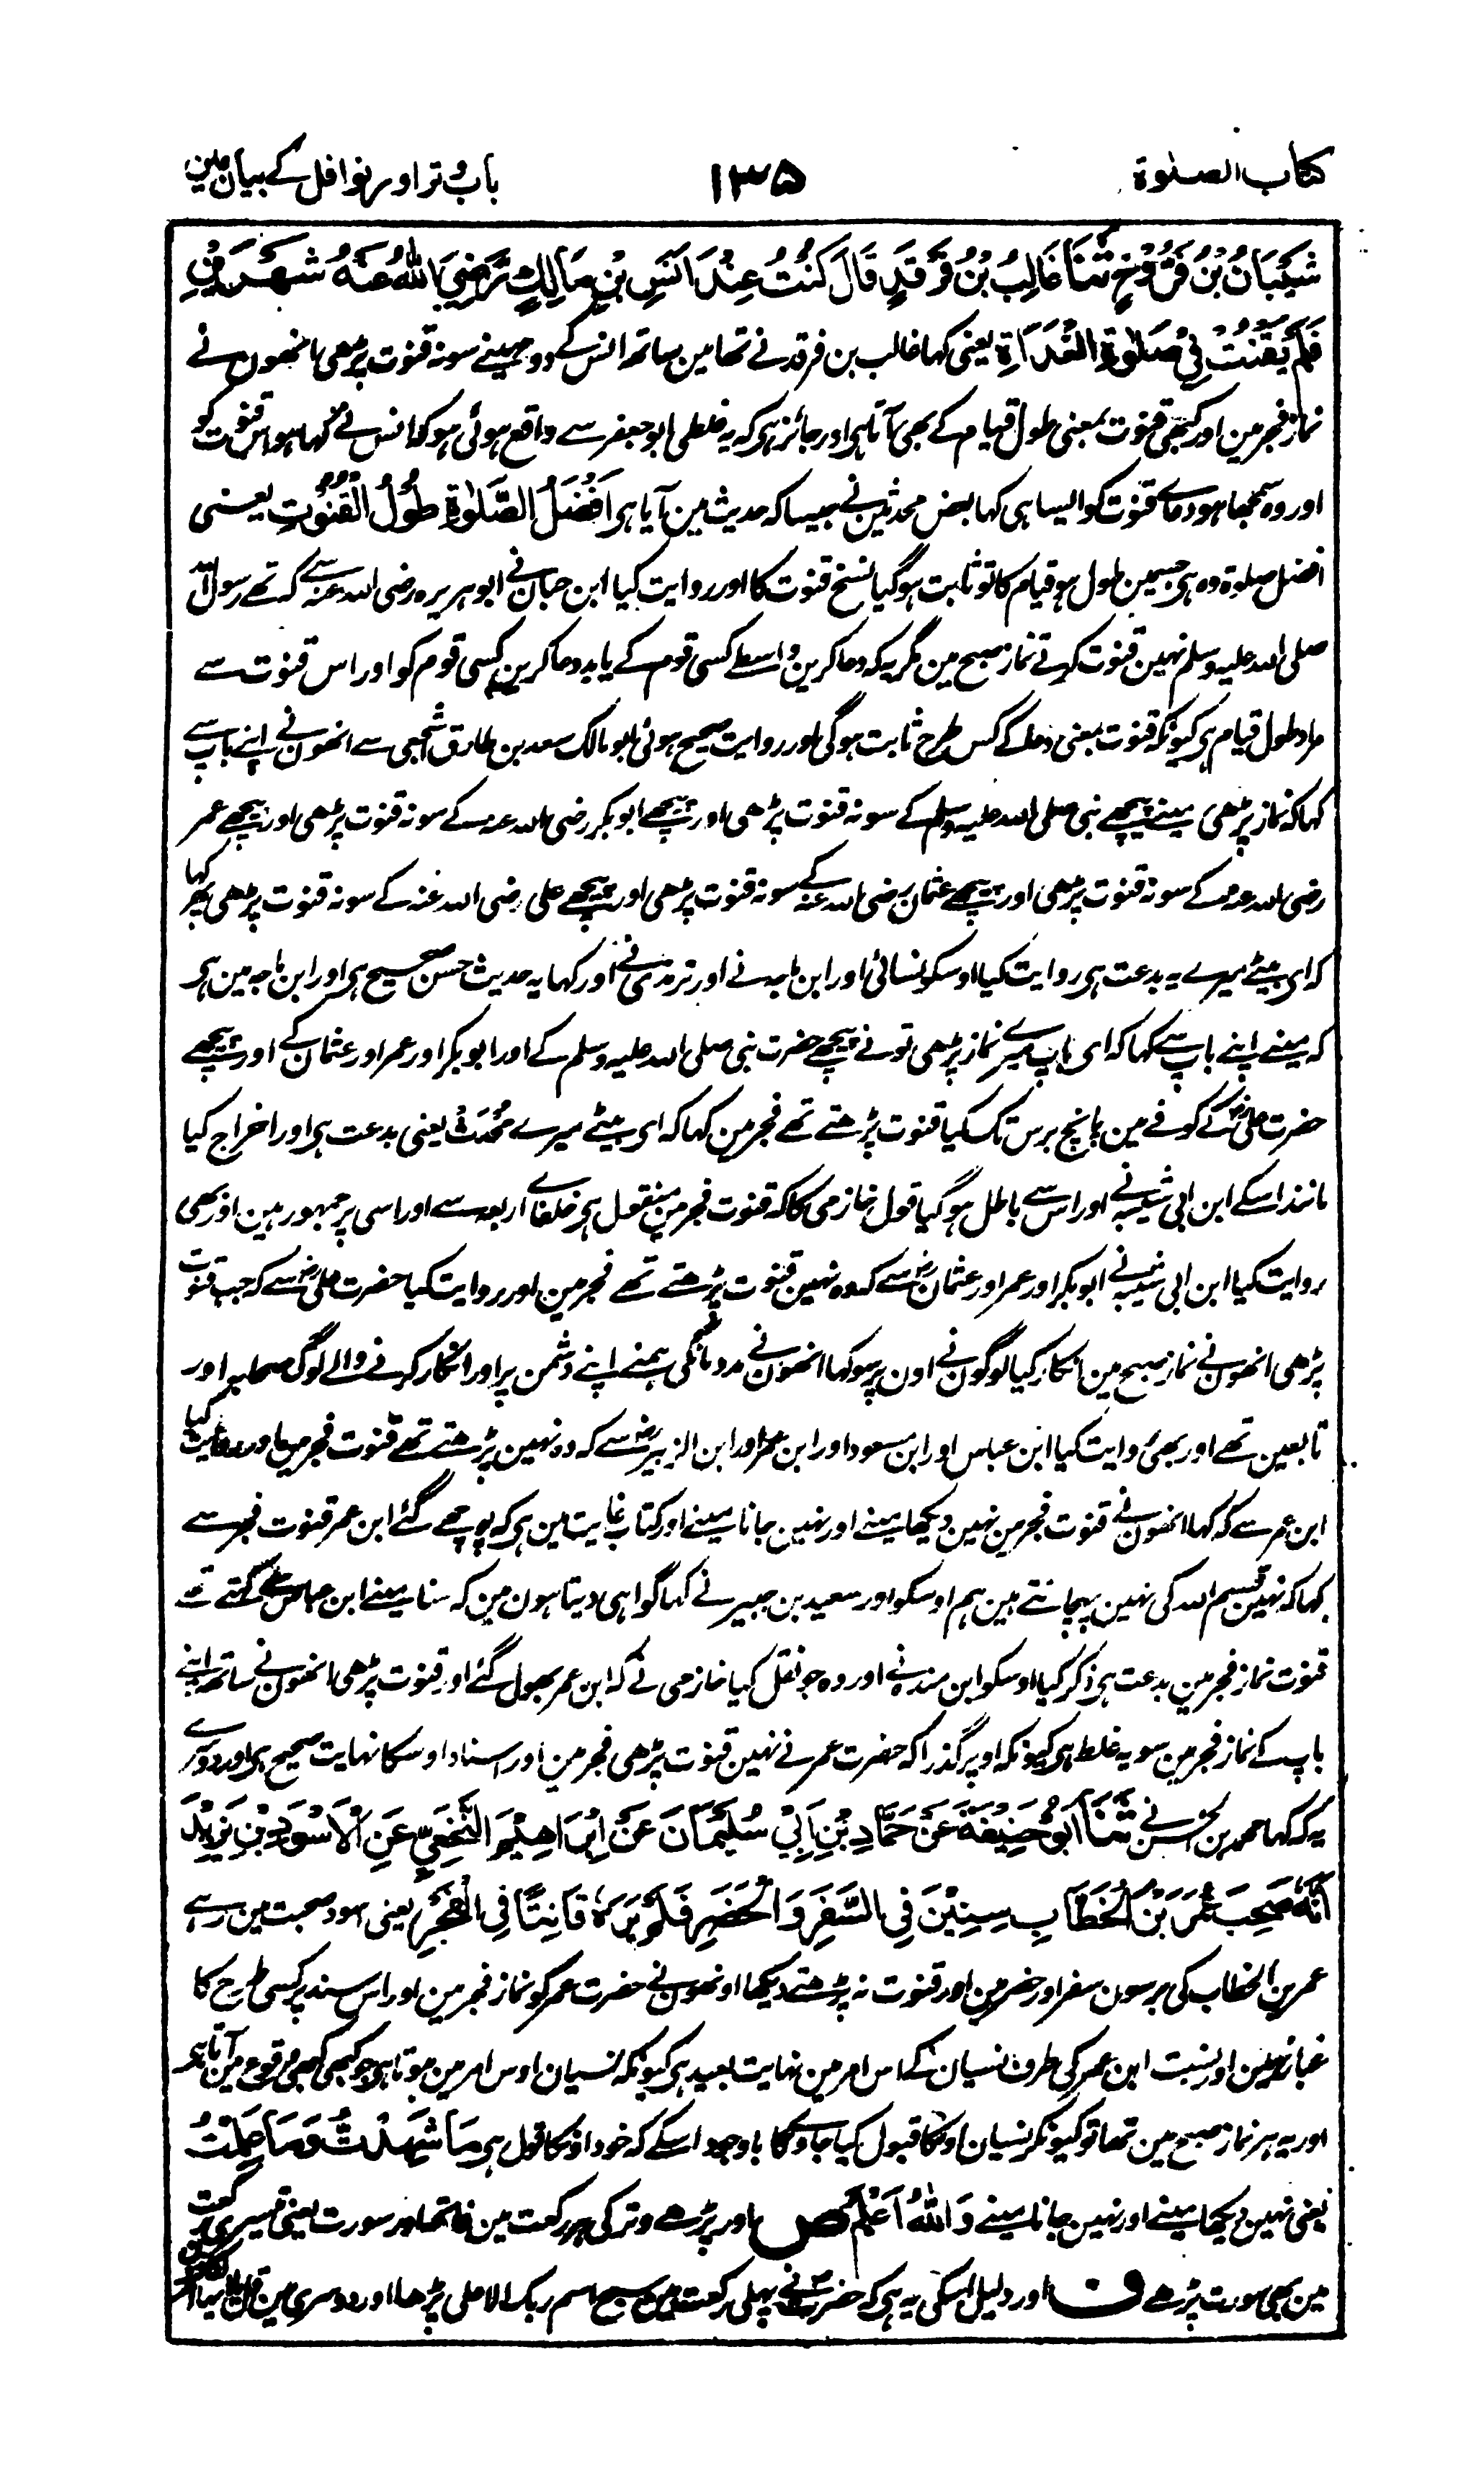 کتاب الصلوٰة ۱۳۵ باب وتر اور نوافل کے بیان مین
شَیْبَانُ بْنُ فَرُّوْخٍ ثَنَا غَالِبُ بْنُ فَرْقَدٍ قَالَ کُنْتُ عِنْدَ اَنَسِ بْنِ مَالِكٍ رَّضِیَ اللهُ عَنْهُ شَهْرَیْنِ
فَلَمْ یَقْنُتْ فِیْ صَلٰوةِ الْغَدَاةِ یعنی کہا غالب بن فرقد نے تھا مین ساتھ انس کے دو مہینے سو نہ قنوت پڑھی انھون نے
نماز فجر مین اور کبھی قنوت بمعنی طول قیام کے بھی آتا ہی اور جائز ہی کہ یہ غلطی ابو جعفر سے واقع ہوئی ہو کہ انس نے کہا ہو اس قنوت کو
اور وہ سمجھا ہو دعاے قنوت کو ایسا ہی کہا بعض محدثین نے جیسا کہ حدیث مین آیا ہی اَفْضَلُ الصَّلٰوةِ طُوْلُ الْقُنُوْتِ یعنی
افضل صلوة وہ ہی جسمین طول ہو قیام کا تو ثابت ہو گیا نسخ قنوت کا اور روایت کیا ابن حبان نے ابو ہریرہ رضی اللہ عنہ سے کہ تھے رسول اللہ
صلی اللہ علیہ وسلم نہین قنوت کرتے نماز صبح مین مگر یہ کہ دعا کرین واسطے کسی قوم کے یا بد دعا کرین کسی قوم کو اور اس قنوت سے
مراد طول قیام ہی کیونکہ قنوت بمعنی دعا کے کس طرح ثابت ہو گی اور روایت صحیح ہوئی ابو مالک سعد بن طارق اشجعی سے انھون نے اپنے باپ سے
کہا کہ نماز پڑھی مینے پیچھے نبی صلی اللہ علیہ وسلم کے سو نہ قنوت پڑھی اور پیچھے ابوبکر رضی اللہ عنہ کے سو نہ قنوت پڑھی اور پیچھے عمر
رضی اللہ عنہ کے سو نہ قنوت پڑھی اور پیچھے عثمان رضی اللہ عنہ کے سو نہ قنوت پڑھی اور پیچھے علی رضی اللہ عنہ کے سو نہ قنوت پڑھی پھر کہا
کہ ای بیٹے میرے یہ بدعت ہی روایت کیا اوسکو نسائی اور ابن ماجہ نے اور ترمذی نے اور کہا یہ حدیث حسن صحیح ہی اور ابن ماجہ مین ہی
کہ مینے اپنے باپ سے کہا کہ ای باپ میرے نماز پڑھی تونے پیچھے حضرت نبی صلی اللہ علیہ وسلم کے اور ابوبکر اور عمر اور عثمان کے اور پیچھے
حضرت علی کے کوفے مین پانچ برس تک کیا قنوت پڑھتے تھے فجر مین کہا کہ ای بیٹے میرے مُحْدَثٌ یعنی بدعت ہی اور اخراج کیا
مانند اسکے ابن ابی شیبہ نے اور اس سے باطل ہو گیا قول حازمی کا کہ قنوت فجر مین منقول ہی خلفاے اربعہ سے اور اسی پر جمہور ہین اور بھی
روایت کیا ابن ابی شیبہ نے ابوبکر اور عمر اور عثمان رض سے کہ وہ نہین قنوت پڑھتے تھے فجر مین اور روایت کیا حضرت علی رض سے کہ جب قنوت
پڑھی انھون نے نماز صبح مین انکار کیا لوگون نے اون پر سو کہا انھون نے مدد مانگی ہمنے اپنے دشمن پر اور انکار کرنے والے لوگ صحابہ اور
تابعین تھے اور بھی روایت کیا ابن عباس اور ابن مسعود اور ابن عمر اور ابن الزبیر رض سے کہ وہ نہین پڑھتے تھے قنوت فجر مین اور روایت کیا
ابن عمر سے کہ کہا انھون نے قنوت فجر مین نہین دیکھا مینے اور نہین جانا مینے اور کتاب غایت مین ہی کہ پوچھے گئے ابن عمر قنوت فجر سے
کہا کہ نہین قسم اللہ کی نہین پہچانتے ہین ہم اوسکو اور سعید بن جبیر نے کہا گواہی دیتا ہون مین کہ سنا مینے ابن عباس سے کہتے تھے
قنوت نماز فجر مین بدعت ہی ذکر کیا اوسکو ابن مندہ نے اور وہ جو نقل کیا حازمی نے کہ ابن عمر بھول گئے اور قنوت پڑھی انھون نے ساتھ اپنے
باپ کے نماز فجر مین سو یہ غلط ہی کیونکہ اوپر گذرا کہ حضرت عمر نے نہین قنوت پڑھی فجر مین اور اسناد اوسکا نہایت صحیح ہی اور دوسرے
یہ کہ کہا محمد بن الحسن نے ثَنَا اَبُوْ حَنِیْفَةَ عَنْ حَمَّادِ بْنِ اَبِیْ سُلَیْمَانَ عَنْ اِبْرَاهِیْمَ النَّخَعِیِّ عَنِ الْاَسْوَدِ بْنِ یَزِیْدَ
اَنَّهُ صَحِبَ عُمَرَ بْنَ الْخَطَّابِ سِنِیْنَ فِی السَّفَرِ وَالْحَضَرِ فَلَمْ یَرَهُ قَانِتًا فِی الْفَجْرِ یعنی اسود صحبت مین رہے
عمر بن الخطاب کی برسون سفر اور حضر مین اور قنوت نہ پڑھتے دیکھا اونھون نے حضرت عمر کو نماز فجر مین اور اس سند پر کسی طرح کا
غبار نہین اور نسبت ابن عمر کی طرف نسیان کے اس امر مین نہایت بعید ہی کیونکہ نسیان اوس امر مین ہوتا ہی جو کبھی کبھی وقوع مین آتا ہی
اور یہ ہر نماز صبح مین تھا تو کیونکر نسیان اونکا قبول کیا جاوے گا باوجود اسکے کہ خود اونکا قول ہی مَا شَهِدْتُ وَمَا عَلِمْتُ
یعنی نہین دیکھا مینے اور نہین جانا مینے وَاللهُ اَعْلَمُ ص اور پڑھے وتر کی ہر رکعت مین فاتحہ اور سورت یعنی تیسری رکعت
مین بھی سورت پڑھے ف اور دلیل اسکی یہ ہی کہ حضرت نے پہلی رکعت مین سبح اسم ربک الاعلی پڑھا اور دوسری مین قل یا ایہا